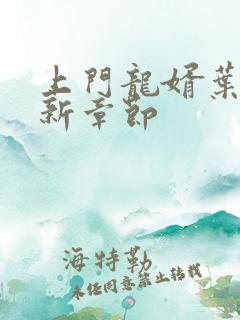 上門龍婿葉
新章節
海特勒
未經同意禁止轉載